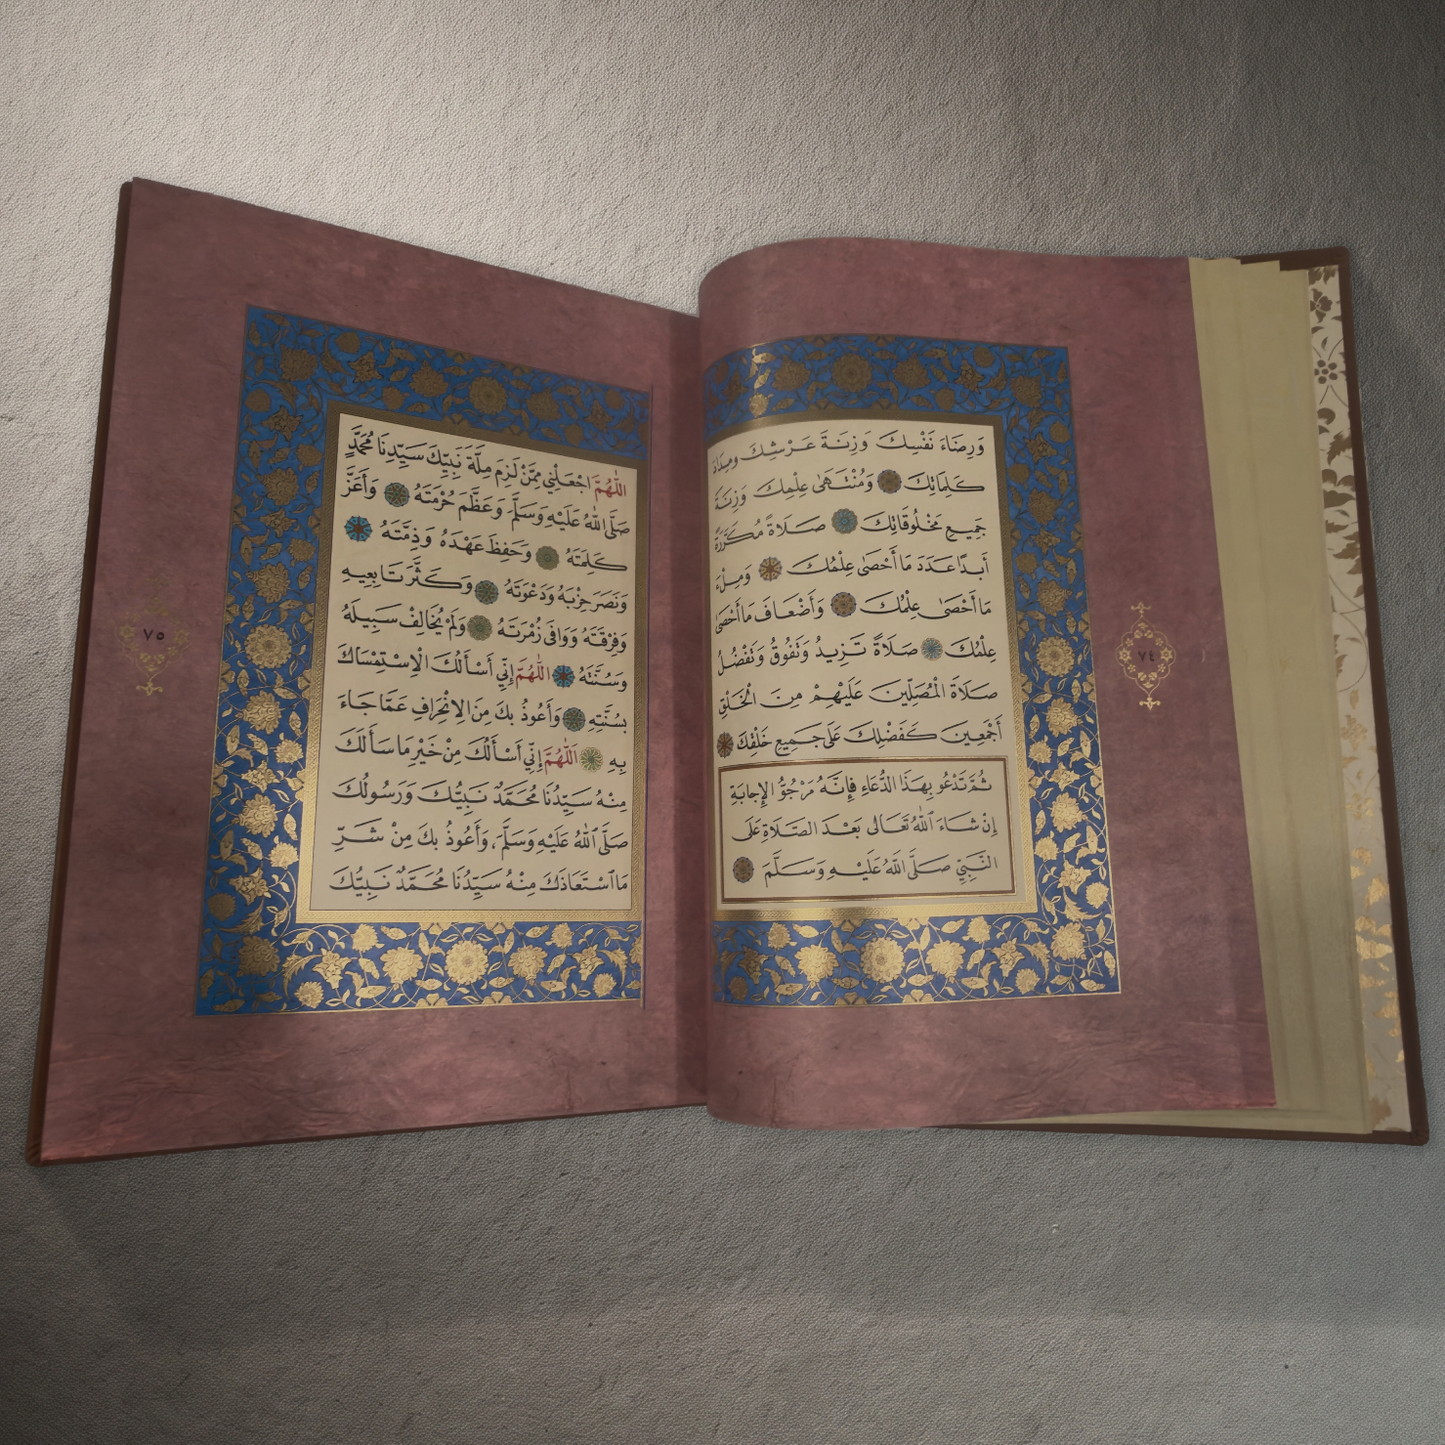 وَرِضَاءَ نَفْسِكَ وَزِنَةَ عَرْشِكَ وَمِدَادَ
كَلِمَاتِكَ وَمُنْتَهَى عِلْمِكَ وَزِنَةَ
جَمِيعِ مَخْلُوقَاتِكَ صَلَاةً مُكَرَّرَةً
أَبَدًا عَدَدَ مَا أَحْصَى عِلْمُكَ وَمِلْءَ
مَا أَحْصَى عِلْمُكَ وَأَضْعَافَ مَا أَحْصَى
عِلْمُكَ صَلَاةً تَزِيدُ وَتَفُوقُ وَتَفْضُلُ
صَلَاةَ الْمُصَلِّينَ عَلَيْهِمْ مِنَ الْخَلْقِ
أَجْمَعِينَ كَفَضْلِكَ عَلَى جَمِيعِ خَلْقِكَ
ثُمَّ تَدْعُو بِهَذَا الدُّعَاءِ فَإِنَّهُ مَرْجُوُّ الْإِجَابَةِ
إِنْ شَاءَ اللهُ تَعَالَى بَعْدَ الصَّلَاةِ عَلَى
النَّبِيِّ صَلَّى اللهُ عَلَيْهِ وَسَلَّمَ
٧٤
اللّٰهُمَّ اجْعَلْنِي مِمَّنْ لَزِمَ مِلَّةَ نَبِيِّكَ سَيِّدِنَا مُحَمَّدٍ
صَلَّى اللهُ عَلَيْهِ وَسَلَّمَ وَعَظَّمَ حُرْمَتَهُ وَأَعَزَّ
كَلِمَتَهُ وَحَفِظَ عَهْدَهُ وَذِمَّتَهُ
وَنَصَرَ حِزْبَهُ وَدَعْوَتَهُ وَكَثَّرَ تَابِعِيهِ
وَفِرْقَتَهُ وَوَافَى زُمْرَتَهُ وَلَمْ يُخَالِفْ سَبِيلَهُ
وَسُنَّتَهُ اللّٰهُمَّ إِنِّي أَسْأَلُكَ الْاِسْتِمْسَاكَ
بِسُنَّتِهِ وَأَعُوذُ بِكَ مِنَ الْاِنْحِرَافِ عَمَّا جَاءَ
بِهِ اللّٰهُمَّ إِنِّي أَسْأَلُكَ مِنْ خَيْرِ مَا سَأَلَكَ
مِنْهُ سَيِّدُنَا مُحَمَّدٌ نَبِيُّكَ وَرَسُولُكَ
صَلَّى اللهُ عَلَيْهِ وَسَلَّمَ، وَأَعُوذُ بِكَ مِنْ شَرِّ
مَا اسْتَعَاذَكَ مِنْهُ سَيِّدُنَا مُحَمَّدٌ نَبِيُّكَ
٧٥